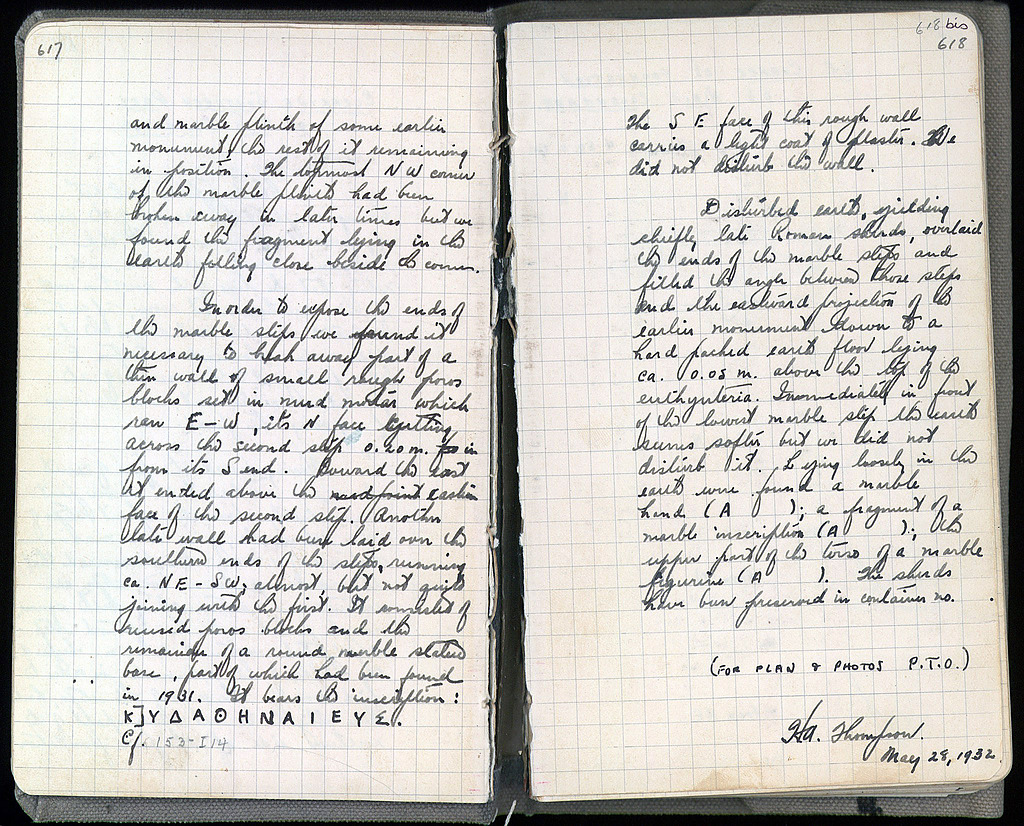 617
and marble plinth of some earlier
monument, the rest of it remaining
in position. The topmost NW corner
of the marble plinth had been
broken away in later times but we
found the fragment lying in the
earth filling close beside the corner.
In order to expose the ends of
the marble steps we found it
necessary to break away part of a
thin wall of small rough poros
blocks set in mud mortar which
ran E-W, its N face jutting
across the second step 0.20 m. in
from its S end. Toward the east
it ended above the eastern
face of the second step. Another
late wall had been laid over the
southern ends of the steps, running
ca. NE-SW, almost, but not quite
joining with the first. It consisted of
reused poros blocks and the
remainder of a round marble statue
base, part of which had been found
in 1931. It bears the inscription:
Κ]ΥΔΑΘΗΝΑΙΕΥΣ.
Cf. 153-I14
618 bis
618
The S E face of this rough wall
carries a light coat of plaster. We
did not disturb the wall.
Disturbed earth, yielding
chiefly late Roman sherds, overlaid
the ends of the marble steps and
filled the angle between those steps
and the eastward projection of the
earlier monument down to a
hard packed earth floor lying
ca. 0.05 m. above the top of the
euthynteria. Immediately in front
of the lowest marble step the earth
seems softer but we did not
disturb it. Lying loosely in the
earth were found a marble
hand (A ); a fragment of a
marble inscription (A ); the
upper part of the torso of a marble
figurine (A ). The sherds
have been preserved in container no. .
(FOR PLAN & PHOTOS P.T.O.)
H.A. Thompson.
May 28, 1932.